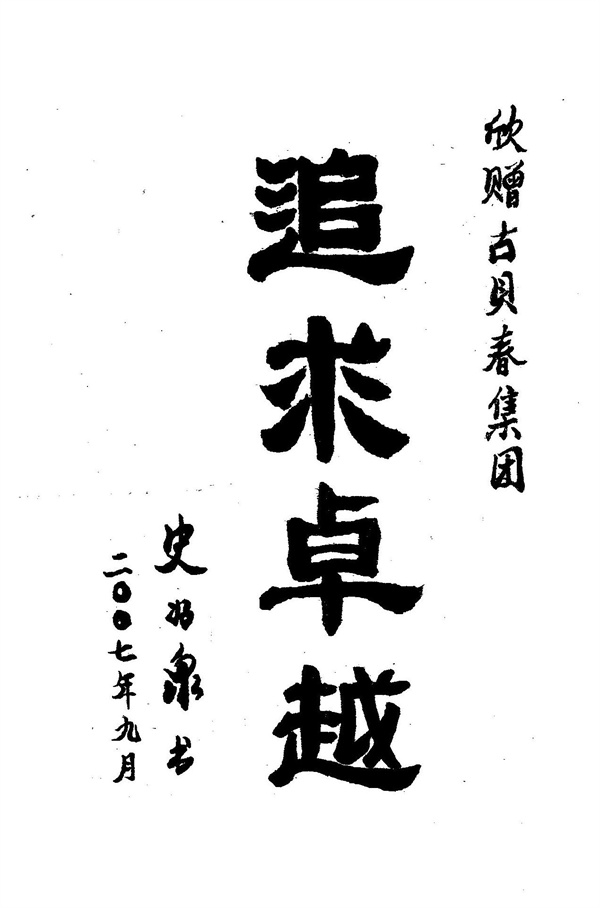 欣赠古贝春集团
追求卓越
史好泉书
二〇〇七年九月